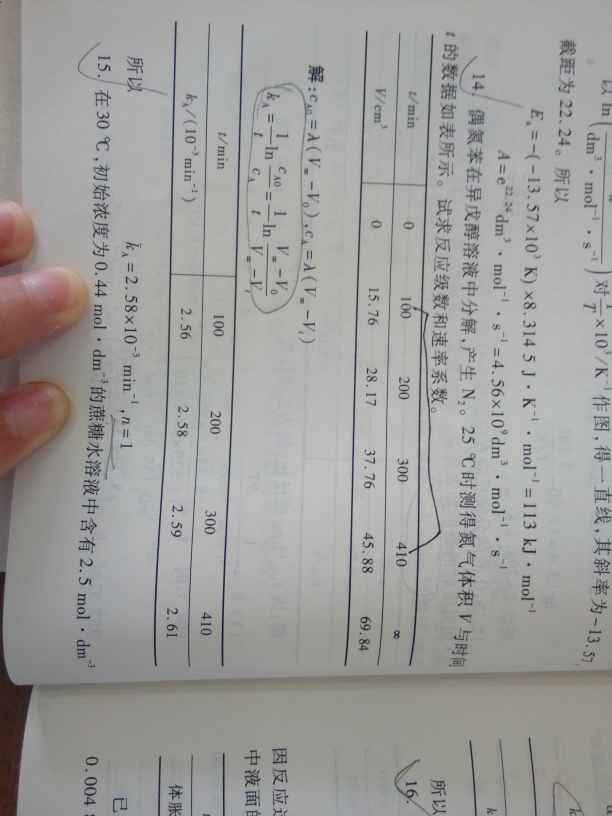 以 ln( / dm³·mol⁻¹·s⁻¹) 对 1/T ×10³/K⁻¹ 作图,得一直线,其斜率为-13.57,
截距为 22.24。所以
Eₐ=-(-13.57×10³ K)×8.314 5 J·K⁻¹·mol⁻¹=113 kJ·mol⁻¹
A=e²²·²⁴ dm³·mol⁻¹·s⁻¹=4.56×10⁹ dm³·mol⁻¹·s⁻¹
14. 偶氮苯在异戊醇溶液中分解,产生 N₂。25 ℃时测得氮气体积 V 与时间
t 的数据如表所示。试求反应级数和速率系数。
t/min 0 100 200 300 410 ∞
V/cm³ 0 15.76 28.17 37.76 45.88 69.84
解:c_A0=λ(V_∞-V_0),c_A=λ(V_∞-V_t)
k_A=1/t ln c_A0/c_A=1/t ln (V_∞-V_0)/(V_∞-V_t)
t/min 100 200 300 410
k_A/(10⁻³min⁻¹) 2.56 2.58 2.59 2.61
所以
k̄_A=2.58×10⁻³ min⁻¹,n=1
15. 在 30 ℃,初始浓度为 0.44 mol·dm⁻³的蔗糖水溶液中含有 2.5 mol·dm⁻³
所以
16.
因反应
中液面
体胀
已
0.004